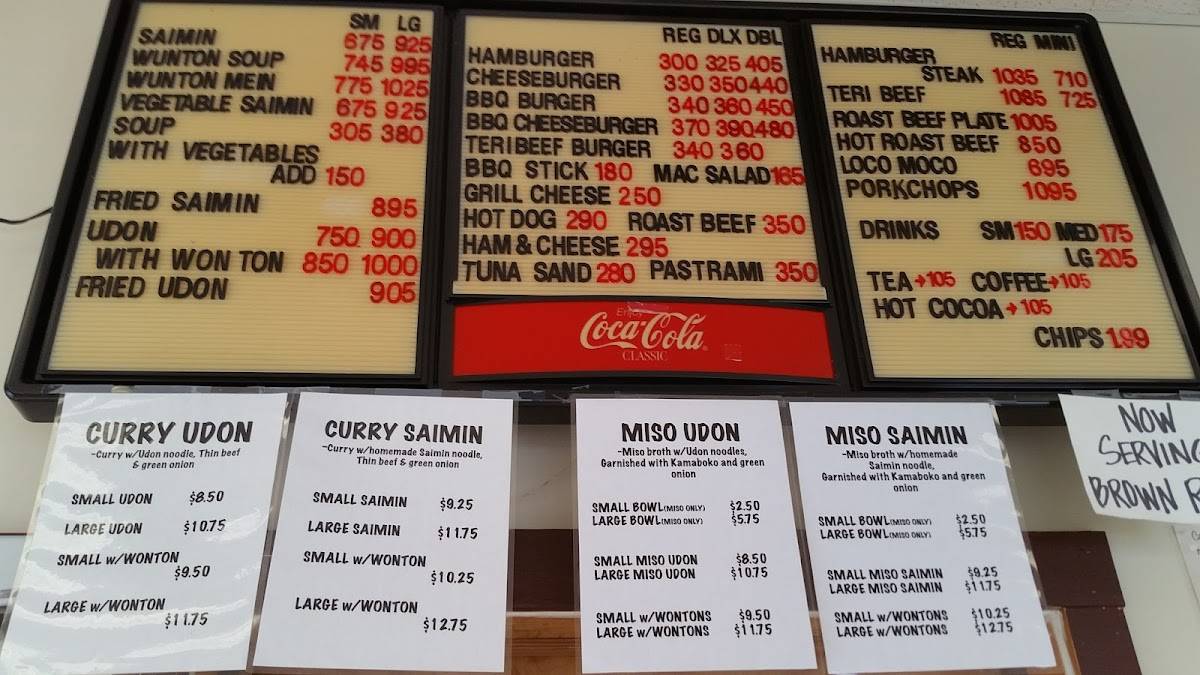 SM LG
SAIMIN 675 925
WUNTON SOUP 745 995
WUNTON MEIN 775 1025
VEGETABLE SAIMIN 675 925
SOUP 305 380
WITH VEGETABLES
ADD 150
FRIED SAIMIN 895
UDON 750 900
WITH WON TON 850 1000
FRIED UDON 905
REG DLX DBL
HAMBURGER 300 325 405
CHEESEBURGER 330 350 440
BBQ BURGER 340 360 450
BBQ CHEESEBURGER 370 390 480
TERIBEEF BURGER 340 360
BBQ STICK 180 MAC SALAD 165
GRILL CHEESE 250
HOT DOG 290 ROAST BEEF 350
HAM & CHEESE 295
TUNA SAND 280 PASTRAMI 350
Enjoy
Coca-Cola
CLASSIC
REG MINI
HAMBURGER
STEAK 1035 710
TERI BEEF 1085 725
ROAST BEEF PLATE 1005
HOT ROAST BEEF 850
LOCO MOCO 695
PORKCHOPS 1095
DRINKS SM 150 MED 175
LG 205
TEA→105 COFFEE→105
HOT COCOA→105
CHIPS 1.99
CURRY UDON
~Curry w/Udon noodle, Thin beef
& green onion
SMALL UDON $8.50
LARGE UDON $10.75
SMALL w/WONTON
$9.50
LARGE w/WONTON
$11.75
CURRY SAIMIN
~Curry w/homemade Saimin noodle,
Thin beef & green onion
SMALL SAIMIN $9.25
LARGE SAIMIN $11.75
SMALL w/WONTON
$10.25
LARGE w/WONTON
$12.75
MISO UDON
~Miso broth w/Udon noodles,
Garnished with Kamaboko and green
onion
SMALL BOWL(MISO ONLY) $2.50
LARGE BOWL(MISO ONLY) $5.75
SMALL MISO UDON $8.50
LARGE MISO UDON $10.75
SMALL w/WONTONS $9.50
LARGE w/WONTONS $11.75
MISO SAIMIN
~Miso broth w/homemade
Saimin noodle,
Garnished with Kamaboko and green
onion
SMALL BOWL(MISO ONLY) $2.50
LARGE BOWL(MISO ONLY) $5.75
SMALL MISO SAIMIN $9.25
LARGE MISO SAIMIN $11.75
SMALL w/WONTONS $10.25
LARGE w/WONTONS $12.75
NOW
SERVING
BROWN